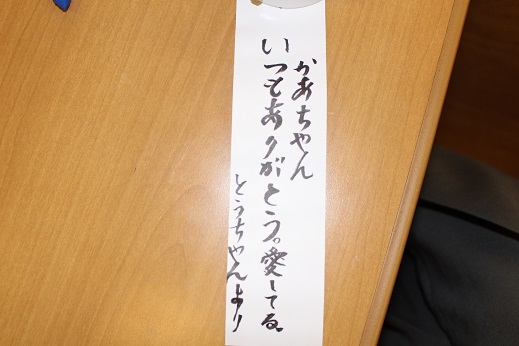 かあちゃん
いつもありがとう。愛してる。
とうちゃんより